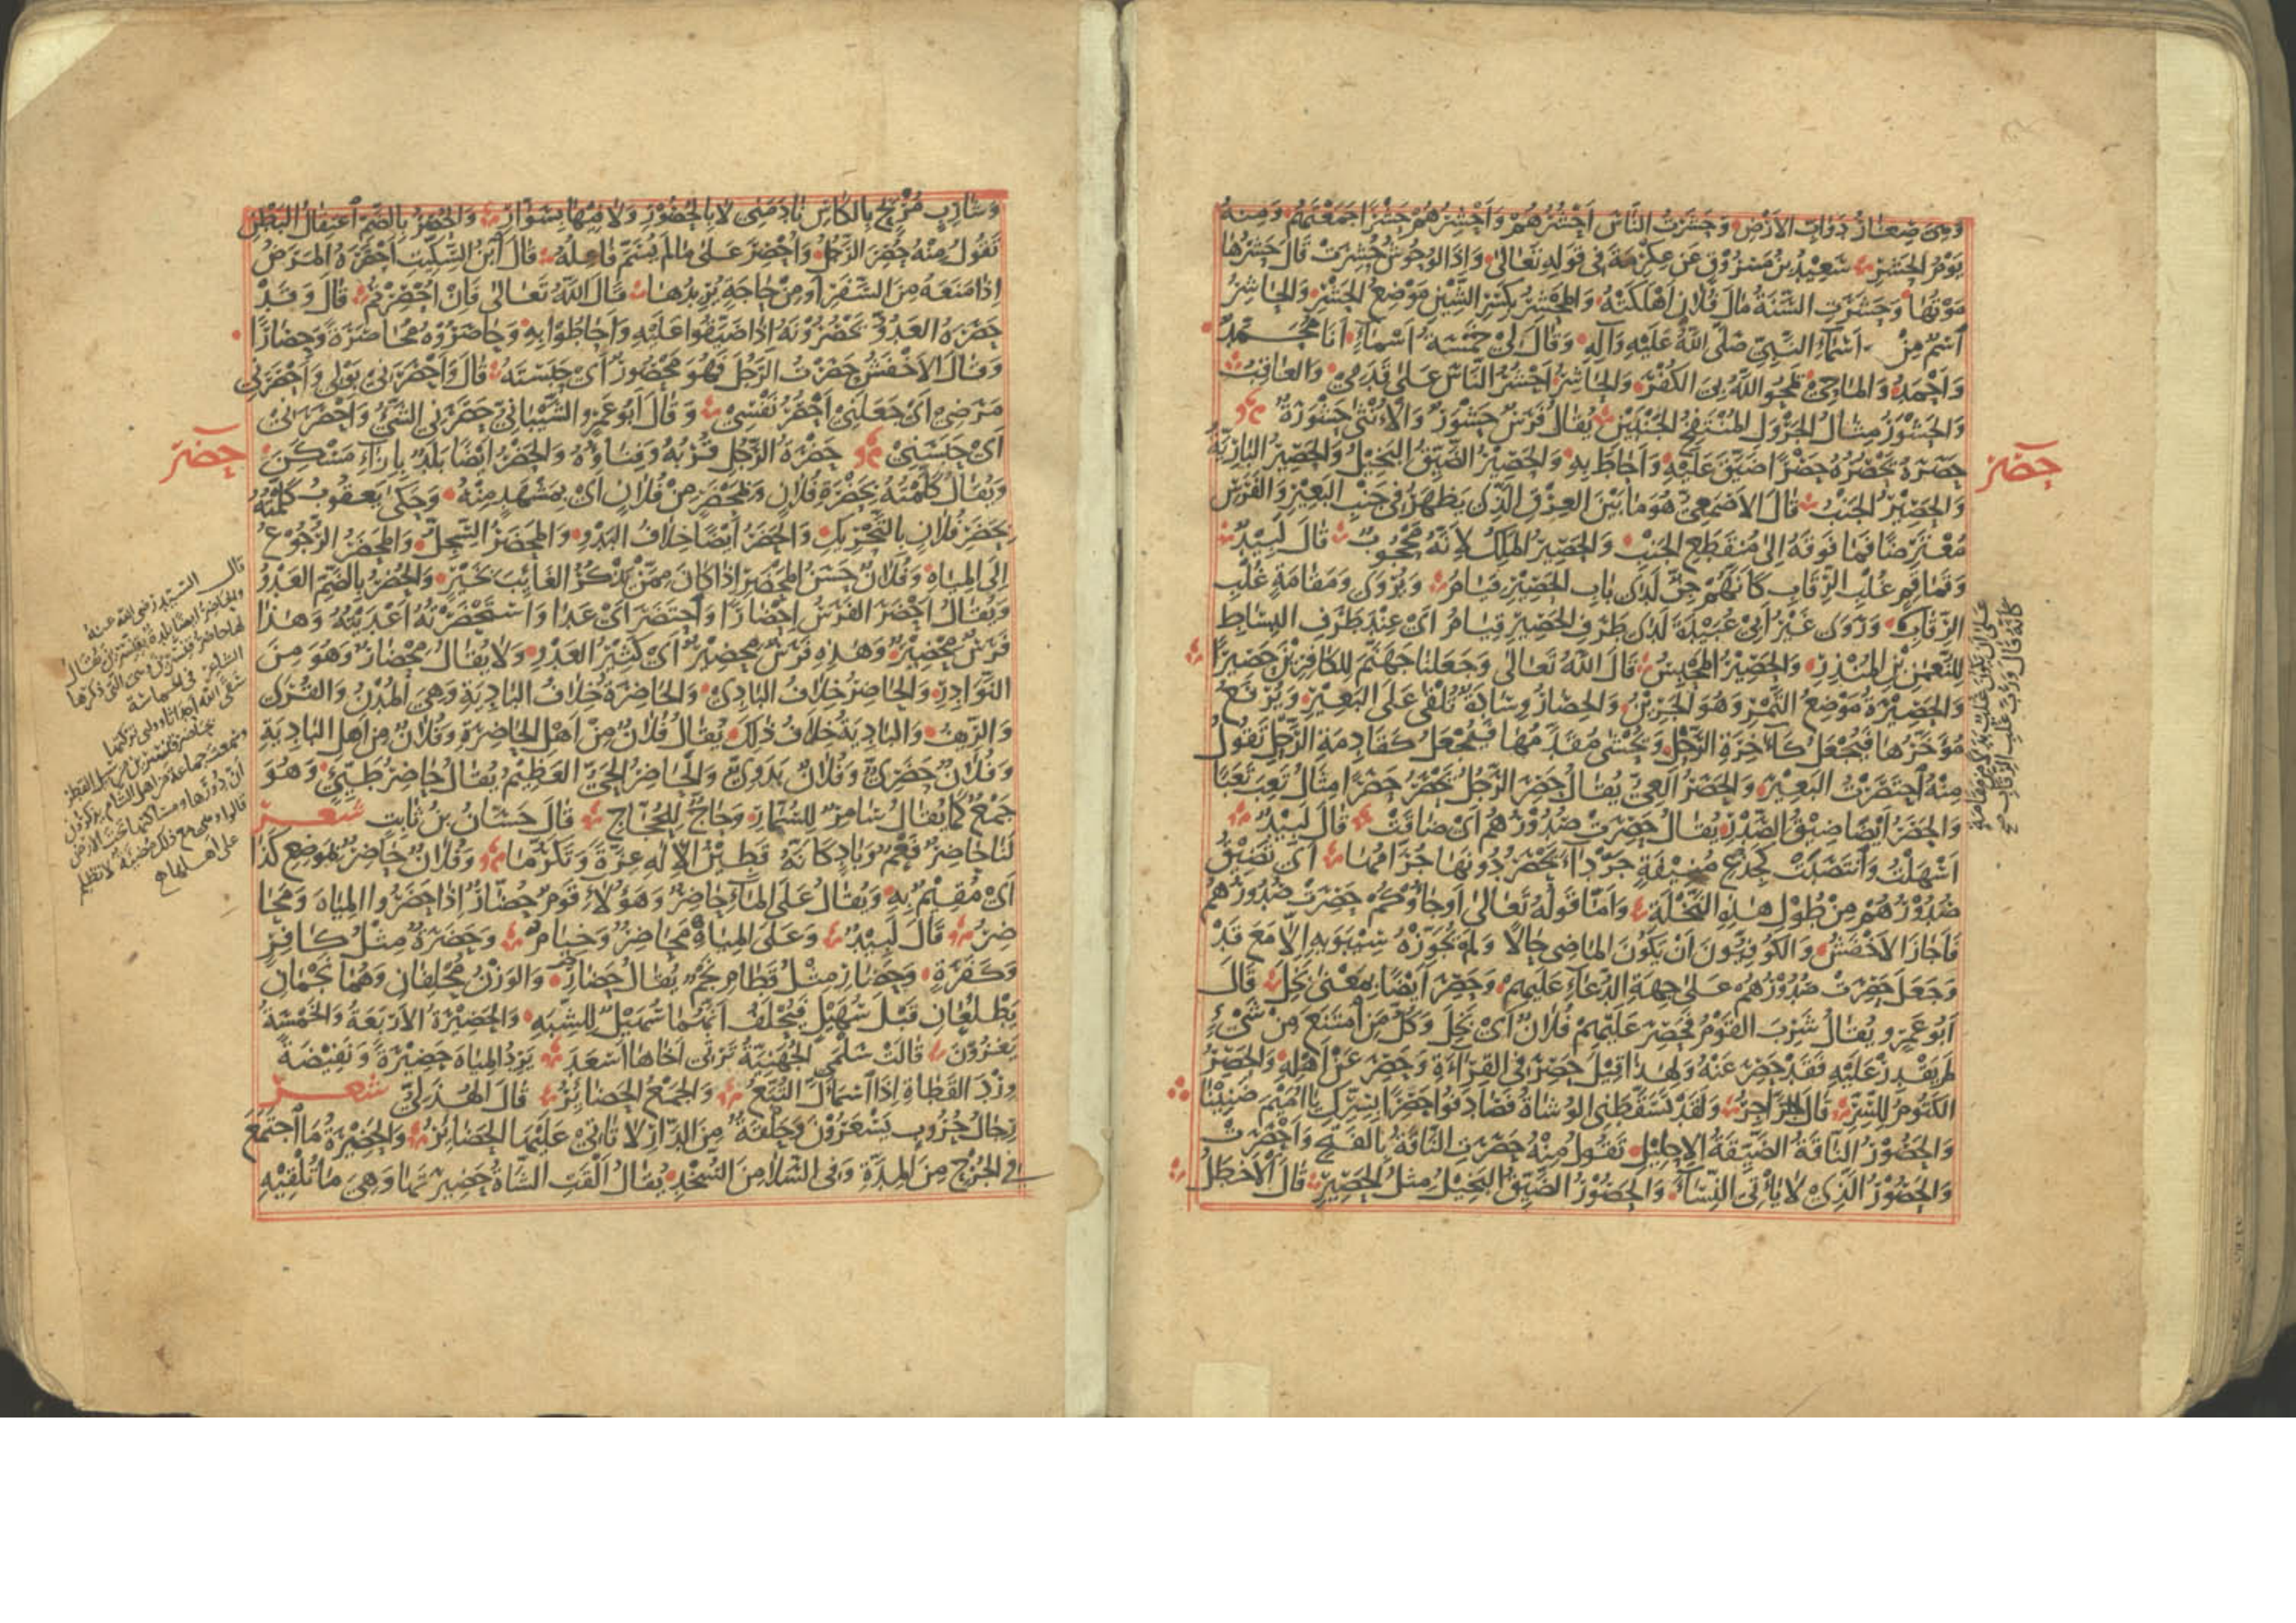 وهى صغار دواب الارض وحشرت الناس أحشرهم وأحشرهم حشرا جمعتهم ومنه
يوم الحشر سعيد بن مسروق عن عكرمة فى قوله تعالى واذا الوحوش حشرت قال حشرها
موتها وحشرت السنة مال فلان اهلكته والمحشر بكسر الشين موضع الحشر والحاشر
اسم من اسماء النبى صلى الله عليه وآله وقال لى خمسة اسماء انا محمد
واحمد والماحى يمحو الله بى الكفر والحاشر احشر الناس على قدمى والعاقب
والحشور مثال الجرول المنتفخ الجنبين يقال فرس حشور والانثى حشورة
حصر
حصره يحصره حصرا ضيق عليه واحاط به والحصير الضيق البخيل والحصير البارية
والحصير الجنب قال الاصمعى هو ما بين العرق الذى يظهر فى جنب البعير والفرس
معترضا فما فوقه الى منقطع الجنب والحصير الملك لانه محجوب قال لبيد
وقماقم غلب الرقاب كانهم جن لدى باب الحصير قيام ويروى ومقامة غلب
الرقاب وروى غير ابى عبيدة لدى طرف الحصير قيام اى عند طرف البساط
للنعمن بن المنذر والحصير المحبس قال الله تعالى وجعلنا جهنم للكافرين حصيرا
والحصيرة موضع التمر وهو الجرين والحصار وسادة تلقى على البعير ويرفع
مؤخرها فيجعل كآخرة الرحل ويحشى مقدمها فيجعل كقادمة الرحل تقول
منه احتصرت البعير والحصر العى يقال حصر الرجل يحصر حصرا مثال تعب تعبا
والحصر ايضا ضيق الصدر يقال حصرت صدورهم اى ضاقت قال لبيد
اسهلت وانتصبت كجذع منيفة جرداء يحصر دونها جرامها اى تضيق
صدورهم من طول هذه النخلة واما قوله تعالى اوجاؤكم حصرت صدورهم
فاجاز الاخفش والكوفيون ان يكون الماضى حالا ولم يجوزه سيبويه الا مع قد
وجعل حصرت صدورهم على جهة الدعاء عليهم وحصر ايضا بمعنى بخل قال
ابو عمرو يقال شرب القوم فحصر عليهم فلان اى بخل وكل من امتنع من شىء
لم يقدر عليه فقد حصر عنه ولهذا قيل حصر فى القراءة وحصر عن اهله والحصر
الكتوم للسر قال جرير ولقد تسقطنى الوشاة فصادفوا حصرا بسرك يا اميم ضنينا
والحصور الناقة الضيقة الاحليل تقول منه حصرت الناقة بالفتح واحصرت
والحصور الذى لا يأتى النساء والحصور الضيق البخيل مثل الحصير قال الاخطل
كأنه قال ورب غلب الرقاب صح
وشارب مربح بالكاس نادمنى لا بالحصور ولا فيها بسوار والحصر بالضم اعتقال البطن
تقول منه حصر الرجل واحصر على ما لم يسم فاعله قال ابن السكيت احصره المرض
اذا منعه من السفر او من حاجة يريدها قال الله تعالى فان احصرتم قال وقد
حصره العدو يحصرونه اذا ضيقوا عليه واحاطوا به وحاصروه محاصرة وحصارا
وقال الاخفش حصرت الرجل فهو محصور اى حبسته قال واحصرنى بولى واحصرنى
مرضى اى جعلنى احصر نفسى وقال ابو عمرو الشيبانى حصرنى الشىء واحصرنى
حضر
اى حبسنى حضرة الرجل قربه وفناؤه والحضر ايضا بلد بازاء مسكن
ويقال كلمته بحضرة فلان وبمحضر من فلان اى بمشهد منه وحكى يعقوب كلمته
بحضر فلان بالتحريك والحضر ايضا خلاف البدو والمحضر السجل والمحضر الرجوع
الى المياه وفلان حسن المحضر اذا كان ممن يذكر الغائب بخير والحضر بالضم العدو
ويقال احضر الفرس احضارا واحتضر اى عدا واستحضرته اعديته وهذا
فرس محضير وهذه فرس محضير اى كثير العدو ولا يقال محضار وهو من
النوادر والحاضر خلاف البادى والحاضرة خلاف البادية وهى المدن والقرى
والريف والبادية خلاف ذلك يقال فلان من اهل الحاضرة وفلان من اهل البادية
وفلان حضرى وفلان بدوى والحاضر الحى العظيم يقال حاضر طيئ وهو
جمع كما يقال سامر للسمار وحاج للحجاج قال حسان بن ثابت شعر
لنا حاضر فعم وباد كانه قطين الاله عزة وتكرما وفلان حاضر بموضع كذا
اى مقيم به ويقال على الماء حاضر وهؤلاء قوم حضار اذا حضروا المياه ومحا
ضر قال لبيد وعلى المياه محاضر وخيام وحضرة مثل كافر
وكفرة وحضار مثل قطام نجم يقال حضار والوزن محلفان وهما نجمان
يطلعان قبل سهيل فيحلف انهما سهيل للشبه والحضيرة الاربعة والخمسة
يغزون قالت سلمى الجهنية ترثى اخاها اسعد يرد المياه حضيرة ونفيضة
ورد القطاة اذا اسمأل التبع والجمع الحضائر قال الهذلى شعر
رجال حروب يسعرون وحلقة من الدار لا تاتى عليها الحضائر والحضيرة ما اجتمع
فى الجرح من المدة وفى السلا من السخد يقال القت الشاة حضيرتها وهى ما تلقيه
قال السيد رضى الله عنه
والحاضر ايضا بلدة بقنسرين يقال
لها حاضر قنسرين وهى التى ذكرها
الشاعر فى الحماسة
سقى الله اجداثا ورائى تركتها
بحاضر قنسرين من سبل القطر
وسمعت جماعة من اهل الشام يذكرون
ان دورها ومساكنها تحت الارض
قالوا وهى مع ذلك مضيئة لا تظلم
على اهلها صح